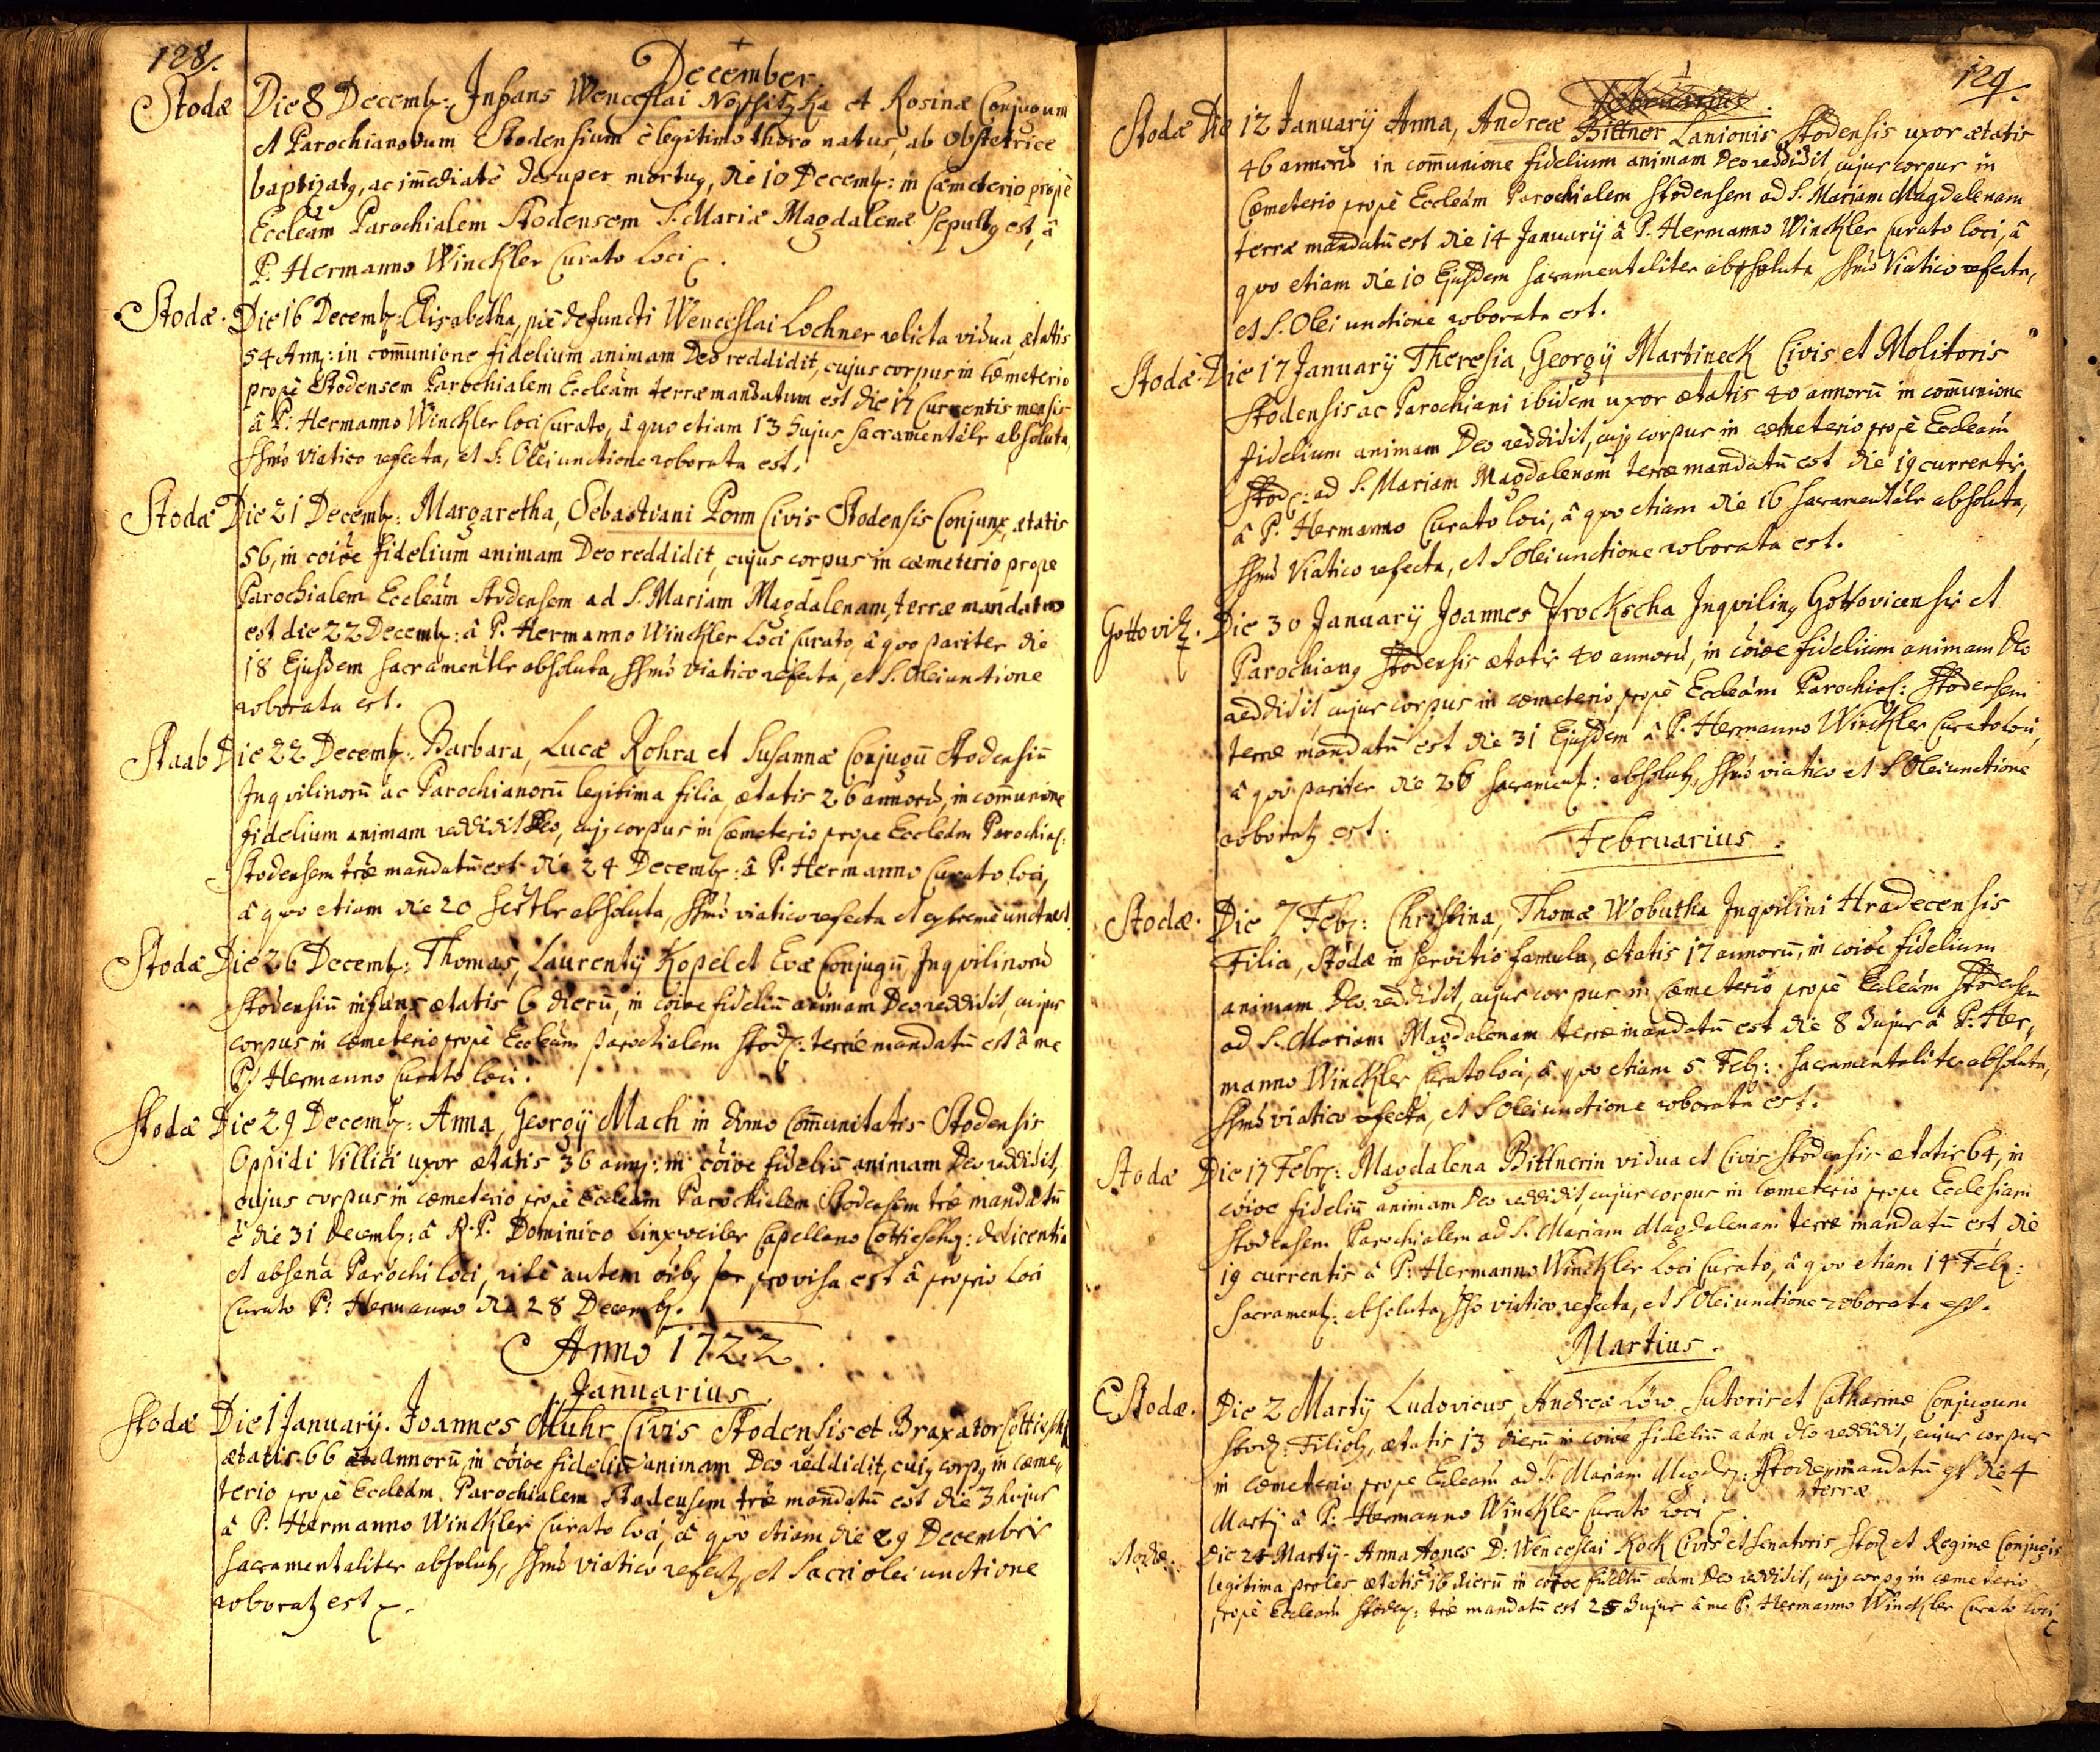 128.
December
Stodæ Die 8 Decemb: Infans Wenceslai et Rosinæ Conjugum
et Parochianorum Stodensium è legitimo thoro natus, ab Obstetrice
baptizatq, ac im̄ediatè desuper mortuq, die 10 Decemb: in Cæmeterio propè
Eccleām Parochialem Stodensem S. Mariæ Magdalenæ Sepultq est, â
P. Hermanno Winckler Curato Loci.
Stodæ. Die 16 Decemb: Elisabetha, piè defuncti Wenceslai Lochner relicta vidua, ætatis
54 Ann: in com̄unione fidelium animam Deo reddidit, cujus corpus in Cœmeterio
propè Stodensem Parochialem Eccleām terræ mandatum est die 17 Currentis mensis
â P. Hermanno Winckler loci Curato, â quo etiam 13 hujus sacramentālr absoluta,
SSmō viatico refecta, et S. Olei unctione roborata est.
Stodæ Die 21 Decemb: Margaretha, Sebastiani Ponn Civis Stodensis Conjunx, ætatis
56, in cōioe fidelium animam Deo reddidit, cujus corpus in cæmeterio prope
Parochialem Eccleām Stodensem ad S. Mariam Magdalenam, terræ mandatum
est die 22 Decemb: â P. Hermanno Winckler Loci Curato, â quo pariter die
18 Ejusdem sacramentlr absoluta, SSmō viatico refecta, et S. Olei unctione
roborata est.
Staab Die 22 Decemb: Barbara, Lucæ Rohra et Susannæ Conjugū Stodensiū
Inquilinorū ac Parochianorū legitima filia ætatis 26 annorū, in com̄unione
fidelium animam reddidit Deo, cujq corpus in Cæmeterio prope Eccleām Parochial:
Stodensem træ mandatū est die 24 Decemb: â P. Hermanno Curato loci,
â quo etiam die 20 absoluta, SSmō viatico refecta et extremè uncta est.
Stodæ Die 26 Decemb: Thomas, Laurentij Kopel et Evæ Conjugū Inquilinorū
Stodensiū infans ætatis 6 dierū, in cōioe fideliū animam Deo reddidit, cujus
corpus in cœmeterio propè Eccleām parochialem Stod: terræ mandatū est â me
P. Hermanno Curato loci.
Stodæ Die 29 Decemb: Anna, Georgij Mach in domo Com̄unitatis Stodensis
Oppidi Villici uxor ætatis 36 ann: in cōioe fideliū animam Deo reddidit,
cujus corpus in cæmeterio propè Eccleām Parochialem Stodensem træ mandatū
ē die 31 Decemb: â R. P. Dominico Linxweiler Capellano : de licentia
et absenā Parochi loci, ritè autem ōibq provisa est â proprio Loci
Curato P. Hermanno die 28 Decemb.
Anno 1722.
Januarius.
Stodæ Die 1 Januarij. Joannes Muhr Civis Stodensis et Braxator
ætatis 66 annorū, in cōioe fideliū animam Deo reddidit, cujq corpq in cæme-
terio propè Eccleām Parochialem Stodensem træ mandatū est die 3 hujus
â P. Hermanno Winckler Curato loci, â quo etiam die 29 Decembris
Sacramentaliter absolutq, SSmō viatico refectq, et Sacri olei unctione
roboratq est.

129.
Stodæ Die 12 Januarij Anna, Andreæ Bittner Lanionis Stodensis uxor ætatis
46 annorū in com̄unione fidelium animam Deo reddidit, cujus corpus in
Cœmeterio propè Eccleām Parochialem Stodensem ad S. Mariam Magdalenam
terræ mandatū est die 14 Januarij â P. Hermanno Winckler Curato loci, â
quo etiam die 10 Ejusdem sacramentaliter absoluta, SSmō Viatico refecta,
et S. Olei unctione roborata est.
Stodæ. Die 17 January Theresia, Georgij Martineck Civis et Molitoris
Stodensis ac Parochiani ibidem uxor ætatis 40 annorū in com̄unione
fidelium animam Deo reddidit, cujq corpus in cœmeterio propè Eccleām
Stod: ad S. Mariam Magdalenam terræ mandatū est die 19 currentis
â P. Hermanno Curato loci, â quo etiam die 16 sacramentālr absoluta,
SSmō Viatico refecta, et S Olei unctione roborata est.
Gottovitz. Die 30 January Joannes Prockscha Inquilinq Gottovicensis et
Parochianq Stodensis ætatis 40 annorū, in cōioe fidelium animam Deo
reddidit cujus corpus in cœmeterio propè Eccleām Parochial: Stodensem
terræ mandatū est die 31 Ejusdem â P. Hermanno Winckler Curato loci,
â quo pariter die 26 sacrament: absolutq, SSmō viatico et S Olei unctione
roboratq est.
Februarius.
Stodæ. Die 7 Feb: Christina, Thomæ Wobutha Inquilini Hradecensis
Filia, Stodæ in servitio famula, ætatis 17 annorū, in cōioe fidelium
animam Deo reddidit, cujus corpus in Cæmeterio propè Eccleām Stodensem
ad S. Mariam Magdalenam terræ mandatū est die 8 hujus â P. Her-
manno Winckler Curato loci, â quo etiam 5 Feb: sacramentaliter absoluta,
SSmō viatico refecta, et S Olei unctione roborata est.
Stodæ Die 17 Febr: Magdalena Bittnerin vidua et Civis Stodensis ætatis 64, in
cōioe fideliū animam Deo reddidit, cujus corpus in cœmeterio prope Ecclesiam
Stodensem Parochialem ad S. Mariam Magdalenam terræ mandatū est, die
19 currentis â P. Hermanno Winckler Loci Curato, â quo etiam 14 Feb:
Sacrament: absoluta, SSo viatico refecta, et S Olei unctione roborata est.
Martius.
Stodæ. Die 2 Martij Ludovicus, Andreæ Löw Sutoris et Catharinæ Conjugum
Stod: Filiolq, ætatis 13 dierū in cōioe fideliū aām Deo reddidit, cujus corpus
in cæmeterio prope Eccleām ad S. Mariam Magd: mandatū est die 4
terræ
Martij â P. Hermanno Winckler Curato Loci.
Stodæ. Die 24 Martij. Anna Agnes D: Wenceslai Kock Civis et Senatoris Stod et Reginæ Conjugis
legitima proles ætatis 16 dierū in cōioe aām Deo reddidit, cujq corpq in cæmeterio
propè Eccleām Stoden: træ mandatū est 25 hujus â me P. Hermanno Winckler Curato loci